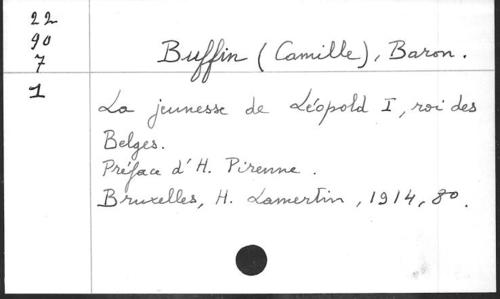 22
90
7
1
Buffin (Camille), Baron.
La jeunesse de Léopold I, roi des
Belges.
Préface d'H. Pirenne.
Bruxelles, H. Lamertin, 1914, 8o.